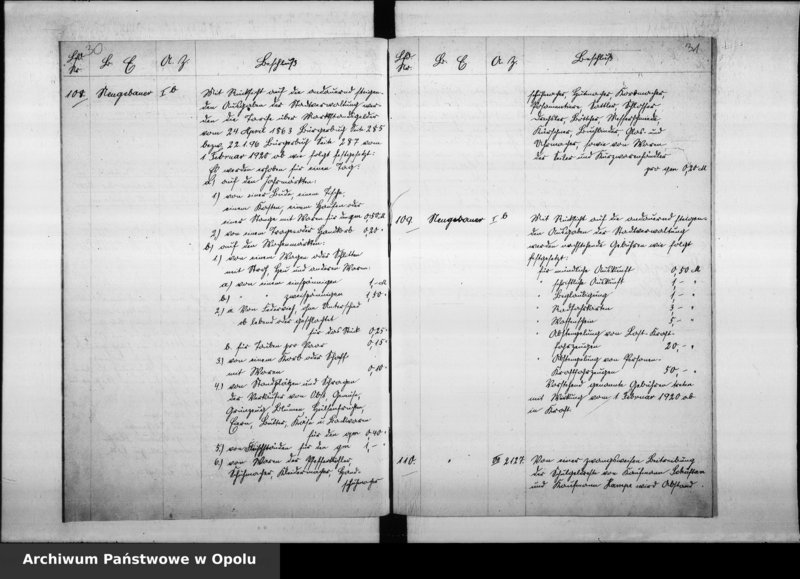 30
Lfd. Nr.
Br. E
A. Z.
Beschluß
108. Neugebauer I b
Mit Rücksicht auf die andauernd steigen-
den Ausgaben der Stadtverwaltung wer-
den die Tarife über Marktstandsgelder
vom 24 April 1863 Bürgerbuch Seite 285
bezw. 22.1.96 Bürgerbuch Seite 287 vom
1 Februar 1920 ab wie folgt festgesetzt:
Es werden erhoben für einen Tag:
a) auf den Jahrmärkten:
1) von einer Bude, einem Tische,
einem Kasten, einem Haufen oder
einer Stange mit Waren für den qm 0,50 M
2) von einem Trage oder Handkorb 0,20 "
b) auf den Wochenmärkten:
1) von einem Wagen oder Schlitten
mit Stroh, Heu und anderen Waren:
a) von einem einspännigen 1,- M
b) " " zweispännigen 1,50 "
2) a. Von Federvieh, ohne Unterschied
ob lebend oder geschlachtet
für das Stück 0,25 "
b. für Tauben pro Paar 0,15 "
3) von einem Korb oder Schaff
mit Waren 0,10 "
4) von Standplätzen und Schragen
der Verkäufer von Obst, Gemüse,
Grünzeug, Blumen, Hülsenfrüchten,
Eiern, Butter, Käse u Backwaren
für den qm 0,40 "
5) von für den qm 1,- "
6) von Waren der Pfefferküchler,
Schuhmacher, Kleidermacher, Hand-
schuhmacher
31
Lfd. Nr.
Br. E
A. Z.
Beschluß
schuhmacher, Hutmacher, Korbmacher,
Posamentiere, Sattler, Schlosser
Drechsler, Böttcher, Messerschmiede,
Kürschner, Buchbinder, Glas- und
Uhrmacher, sowie von Waren
der Seiler und Kurzwarenhändler
pro qm 0,20 M
109. Neugebauer I b
Mit Rücksicht auf die andauernd steigen-
den Ausgaben der Stadtverwaltung
werden nachstehende Gebühren wie folgt
festgesetzt:
für mündliche Auskunft 0,50 M
" schriftliche Auskunft 1,- "
" Beglaubigung 1,- "
" Radfahrkarten 3,- "
" Waffenschein 5,- "
" Abstempelung von Last-Kraft-
fahrzeugen 20,- "
" Abstempelung von Personen-
Kraftfahrzeugen 50,- "
Vorstehend genannte Gebühren treten
mit Wirkung vom 1 Februar 1920 ab
in Kraft
110. " 2127.
Von einer zwangsweisen Beitreibung
der von Kaufmann
und Kaufmann Hampe wird Abstand.
Archiwum Państwowe w Opolu